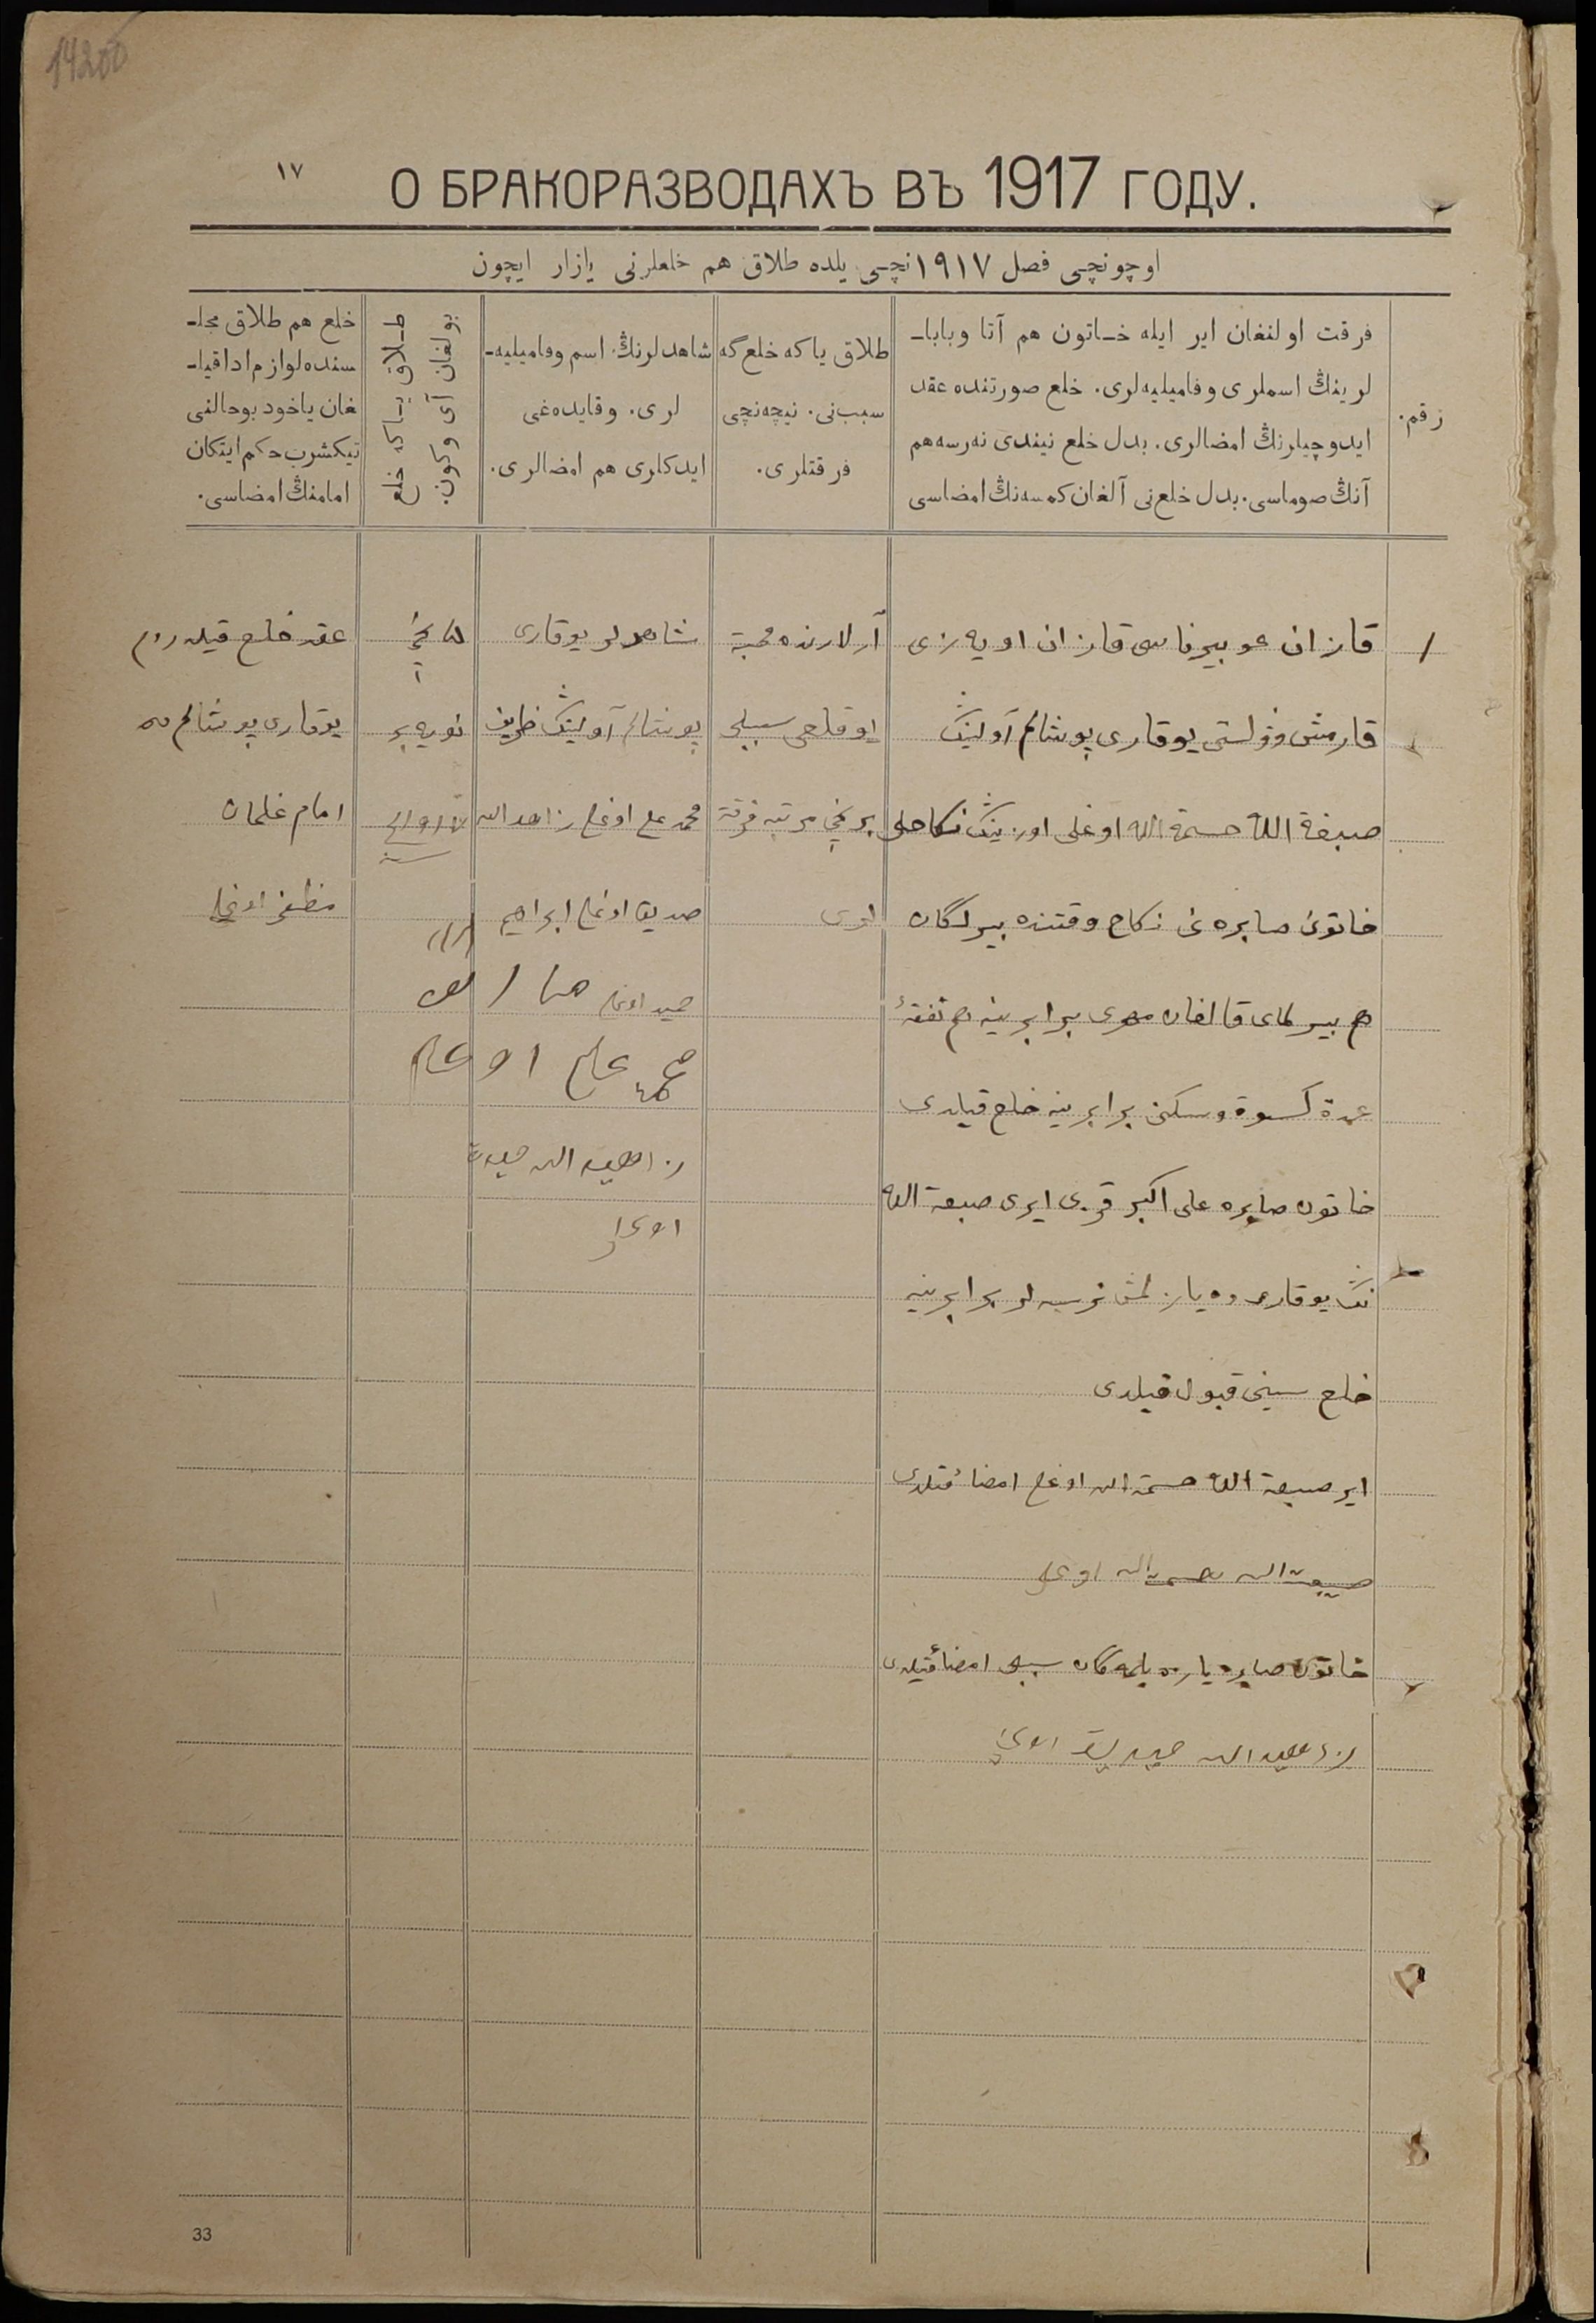 14200
١٧
О БРАКОРАЗВОДАХЪ ВЪ 1917 ГОДУ.
اوچونچی فصل ١٩١٧نچی یلده طلاق هم خلعلرنی یازار ایچون
رقم.
فرقت اولنغان ایر ایله خاتون هم آتا وبابا-
لرینڭ اسملری وفامیلیه‌لری. خلع صورتنده عقد
ایدوچیلرنڭ امضالری. بدل خلع نیندی نه‌رسه هم
آنڭ صوماسی. بدل خلع‌نی آلغان کمسه‌نڭ امضاسی
طلاق یاکه خلع‌گه
سبب‌نی. نیچه‌نچی
فرقتلری.
شاهدلرنڭ اسم وفامیلیه-
لری. وقایده‌غی
ایدکلری هم امضالری.
طلاق یاکه خلع
بولغان آی وکون.
خلع هم طلاق مجلـ
سنده لوازم ادا قیلـ
غان یاخود بو حالنی
تیکشرب حکم ایتکان
امامنڭ امضاسی.
١
قازان غوبیرناسی قازان اویه‌زی
قارمش وولستی یوقاری پوشالم آولینڭ
صبغة الله حسمة الله اوغلی اوزینڭ نکاحلی
خاتونی صابره نی نکاح وقتنده بیرلگان
هم بیرلمای قالغان مهری برابرینه هم نفقهٔ
عدة کسوة وسکنی برابرینه خلع قیلدی
خاتون صابره علی اکبر قزی ایری صبغة الله
نڭ یوقاریده یازلمش نرسه‌لر برابرینه
خلع سینی قبول قیلدی
ایر صبغة الله حسمة الله اوغلی امضاء قیلدی
صبغة الله حسمة الله اوغلی
خاتون صابره یازه بلمه‌گان سببلی امضاء قیلدی
زاهدالله صدیق اوغلی
آرالارنده محبة
یوقلغی سببلی
برنچی مرتبه فرقة
لری
شاهدلر یوقاری
پوشالم آولینڭ ظریف
محمد علی اوغلی زاهدالله
صدیق اوغلی ابراهیم
اوغلی
محمد علی اوغلی
زاهدالله صدیق
اوغلی
نچی
نویه‌بر
عقد خلع قیلدردم
یوقاری پوشالم
امام
مظفر اوغلی
33